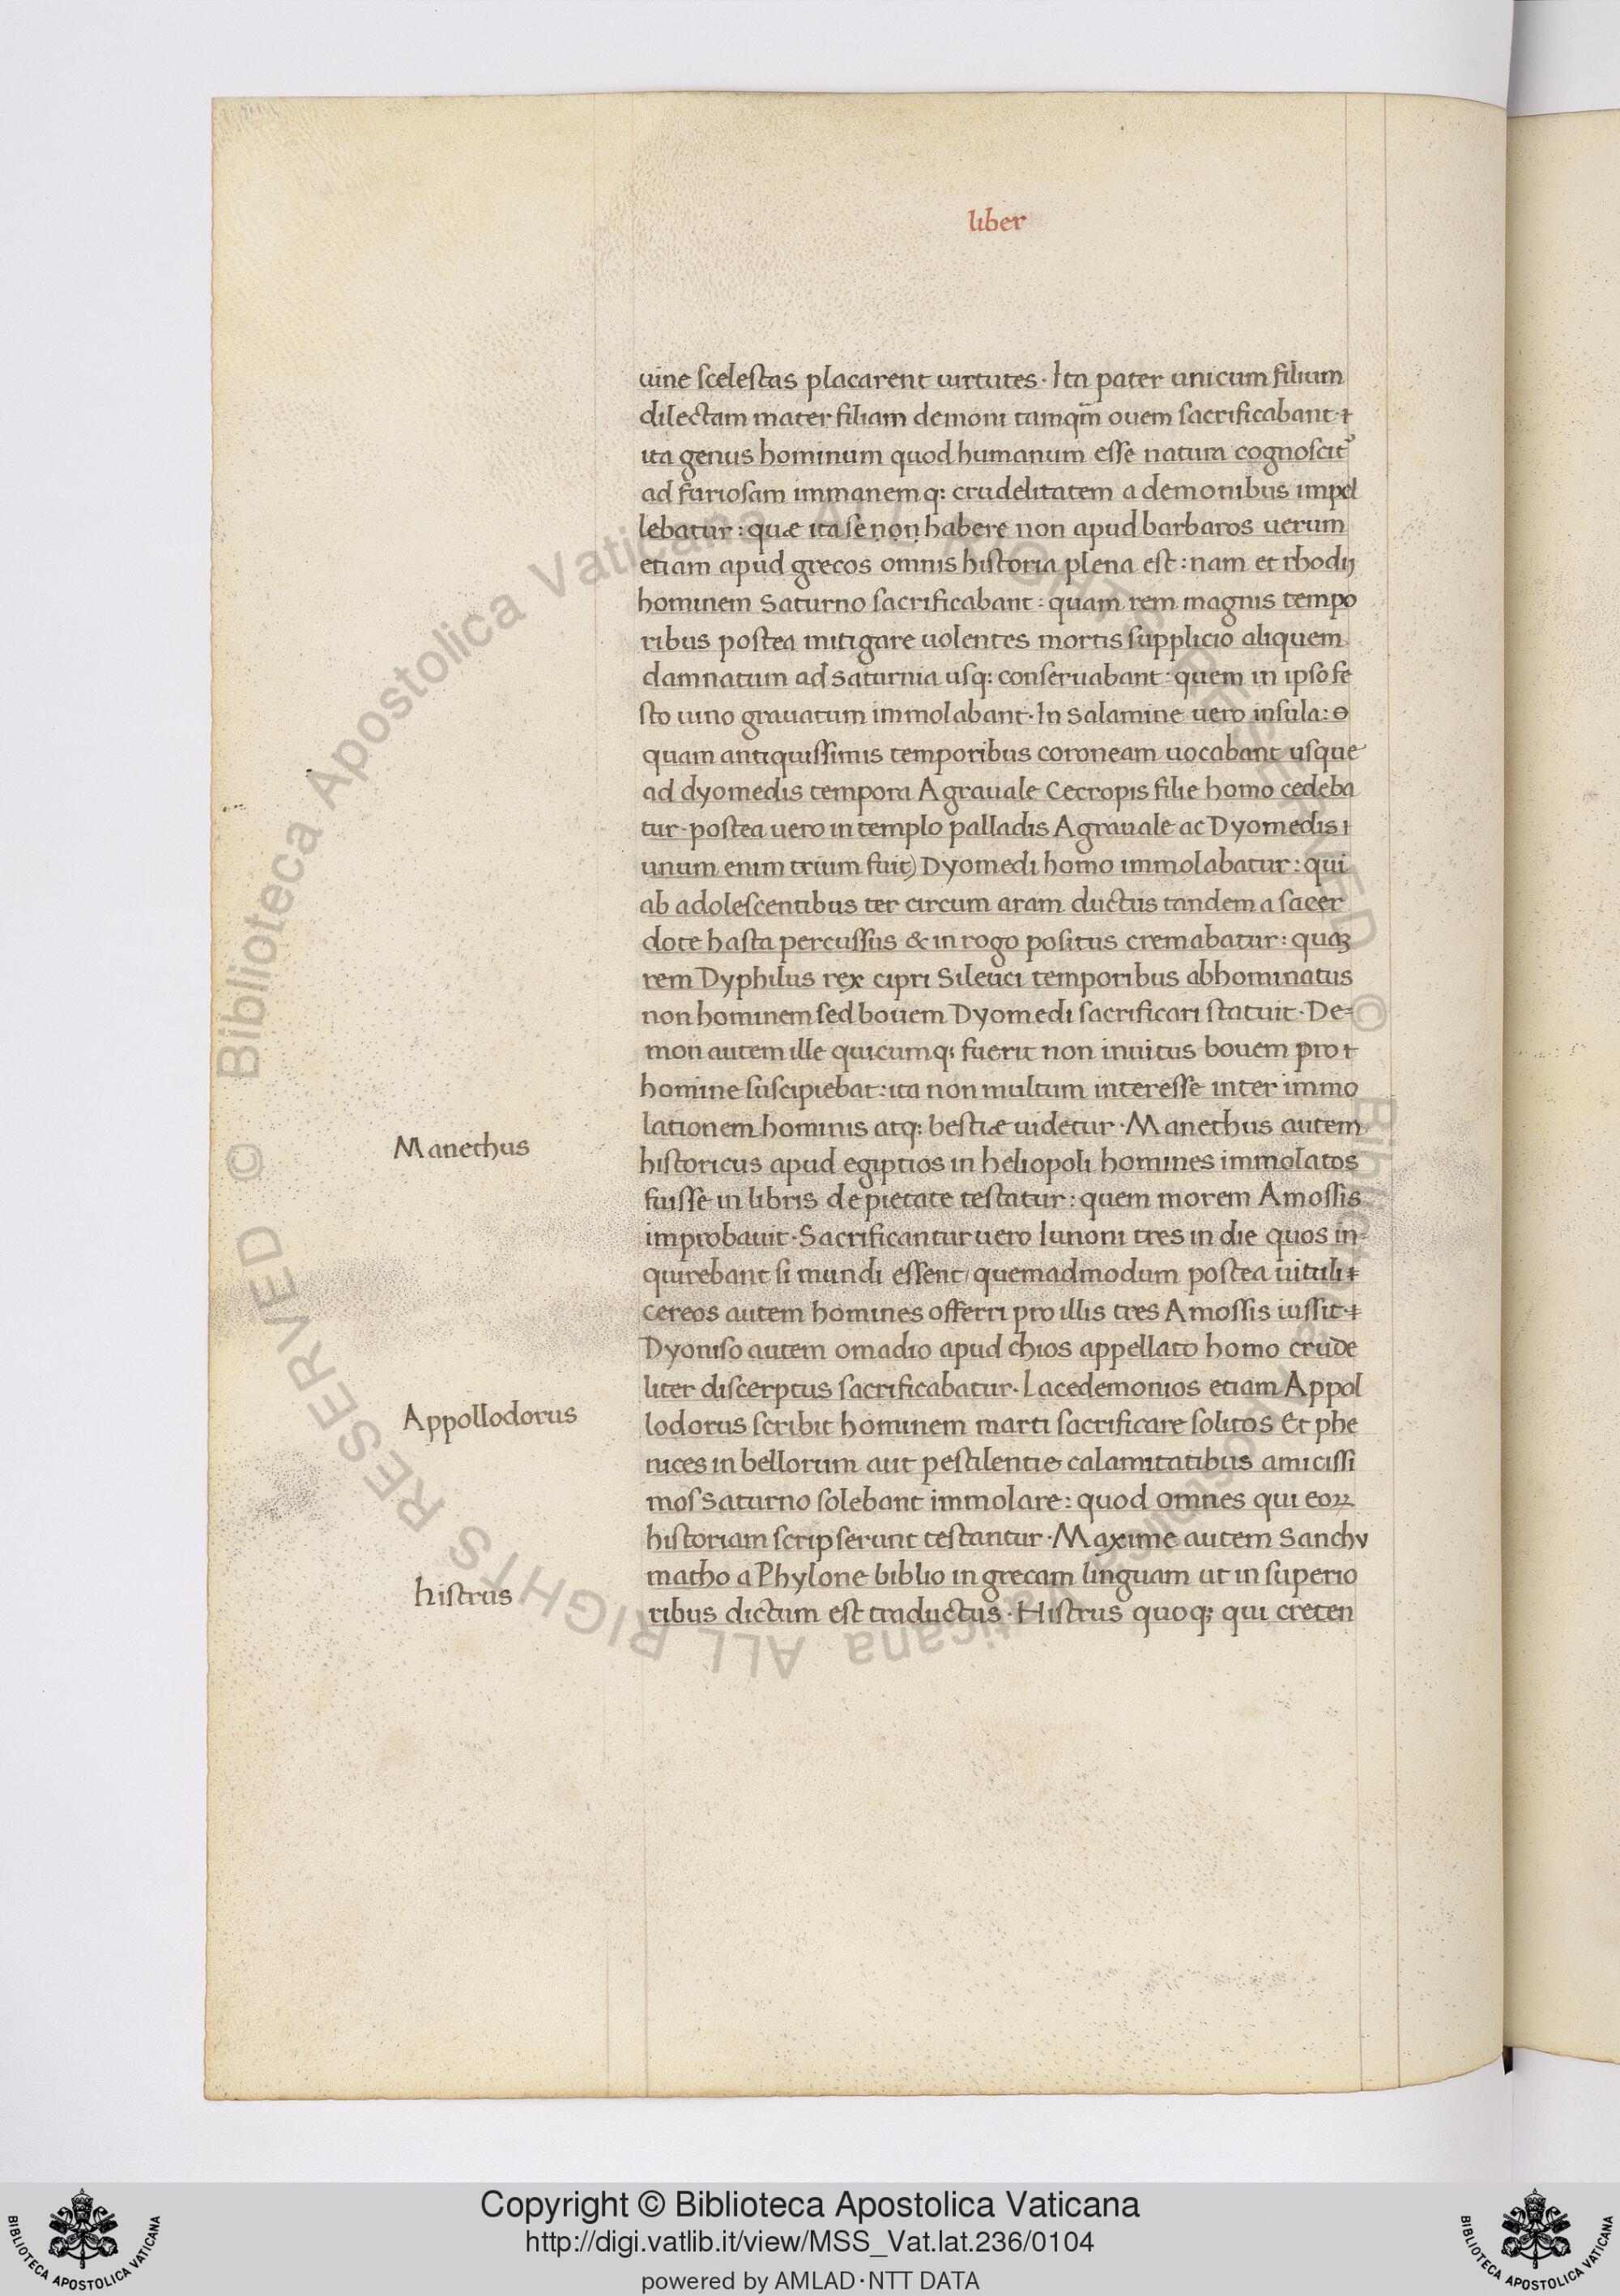 liber
uine scelestas placarent uirtutes · Ita pater unicum filium
dilectam mater filiam demoni tamqm̄ ouem sacrificabant ·
ita genus hominum quod humanum esse natura cognoscit᷑
ad furiosam immanemq: crudelitatem a demonibus impel
lebatur : quæ ita se non habere non apud barbaros uerum
etiam apud grecos omnis historia plena est : nam et rhodij
hominem Saturno sacrificabant : quam rem magnis tempo
ribus postea mitigare uolentes mortis supplicio aliquem
damnatum ad saturnia usq: conseruabant : quem in ipso fe
sto uino grauatum immolabant · In Salamine uero insula :
quam antiquissimis temporibus coroneam uocabant usque
ad dyomedis tempora Agrauale Cecropis filie homo cedeba
tur · postea uero in templo palladis Agrauale ac Dyomedis
unum enim trium fuit) Dyomedi homo immolabatur : qui
ab adolescentibus ter circum aram ductus tandem a sacer
dote hasta percussus & in rogo positus cremabatur : quaꝫ
rem Dyphilus rex cipri Sileuci temporibus abhominatus
non hominem sed bouem Dyomedi sacrificari statuit · De-
mon autem ille quicumq; fuerit non inuitus bouem pro
homine suscipiebat : ita non multum interesse inter immo
lationem hominis atq: bestiæ uidetur · Manethus autem
Manethus
historicus apud egiptios in heliopoli homines immolatos
fuisse in libris de pietate testatur : quem morem Amossis
improbauit · Sacrificantur uero Iunoni tres in die quos in-
quirebant si mundi essent / quemadmodum postea uituli
cereos autem homines offerri pro illis tres Amossis iussit ·
Dyoniso autem omadio apud chios appellato homo crude
liter discerptus sacrificabatur · Lacedemonios etiam Appol
Appollodorus
lodorus scribit hominem marti sacrificare solitos Et phe
nices in bellorum aut pestilentie calamitatibus amicissi
mos Saturno solebant immolare : quod omnes qui eoꝝ
historiam scripserunt testantur · Maxime autem Sanchv
matho a Phylone biblio in grecam linguam ut in superio
histrus
ribus dictum est traductus · Histrus quoq; qui creten
Copyright © Biblioteca Apostolica Vaticana
http://digi.vatlib.it/view/MSS_Vat.lat.236/0104
powered by AMLAD·NTT DATA
BIBLIOTECA APOSTOLICA VATICANA
BIBLIOTECA APOSTOLICA VATICANA